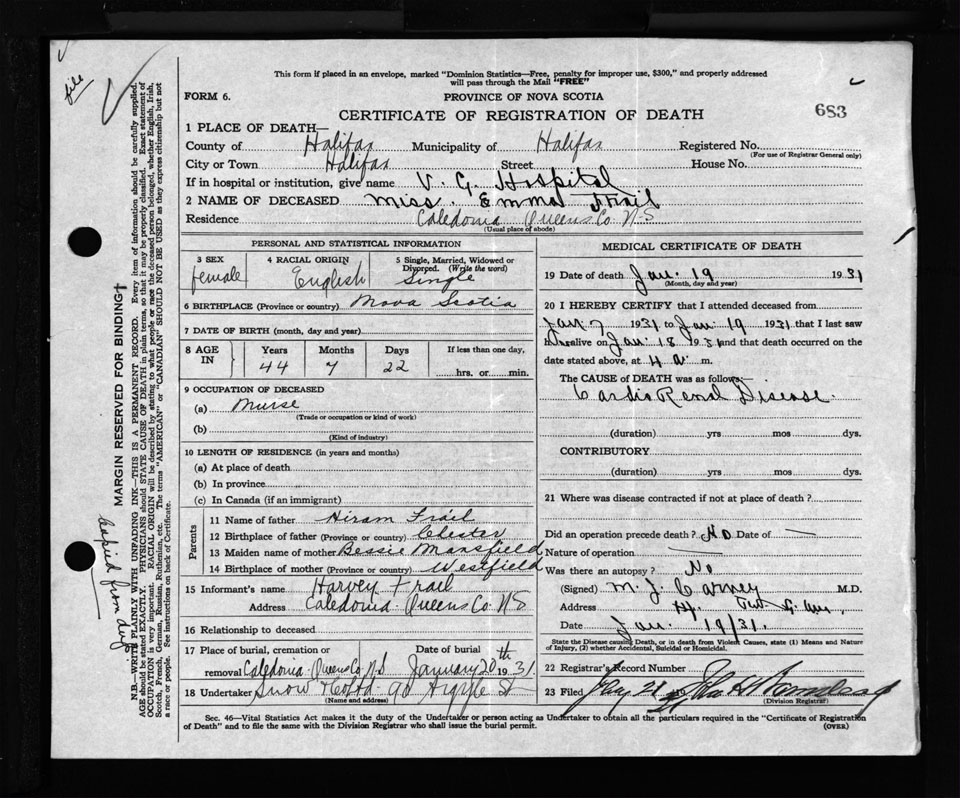 file
This form if placed in an envelope, marked "Dominion Statistics—Free, penalty for improper use, $300," and properly addressed
will pass through the Mail "FREE"
FORM 6. PROVINCE OF NOVA SCOTIA
CERTIFICATE OF REGISTRATION OF DEATH 683
1 PLACE OF DEATH—
County of Halifax Municipality of Halifax Registered No.
(For use of Registrar General only)
City or Town Halifax Street House No.
If in hospital or institution, give name V. G. Hospital
2 NAME OF DECEASED Miss. Emma Frail
Residence Caledonia Queens Co. N S
(Usual place of abode)
PERSONAL AND STATISTICAL INFORMATION
3 SEX 4 RACIAL ORIGIN 5 Single, Married, Widowed or
Divorced. (Write the word)
female English Single
6 BIRTHPLACE (Province or country) Nova Scotia
7 DATE OF BIRTH (month, day and year)
8 AGE IN Years Months Days If less than one day,
44 7 22 hrs. or min.
9 OCCUPATION OF DECEASED
(a) Nurse
(Trade or occupation or kind of work)
(b)
(Kind of industry)
10 LENGTH OF RESIDENCE (in years and months)
(a) At place of death
(b) In province
(c) In Canada (if an immigrant)
Parents
11 Name of father Hiram Frail
12 Birthplace of father (Province or country) Chester
13 Maiden name of mother Bessie Mansfield
14 Birthplace of mother (Province or country) Westfield
15 Informant's name Harvey Frail
Address Caledonia Queens Co. N S
16 Relationship to deceased
17 Place of burial, cremation or Date of burial
removal Caledonia Queens Co N.S January 20th 1931
18 Undertaker Snow & Co Ltd. 90 Argyle St
(Name and address)
MEDICAL CERTIFICATE OF DEATH
19 Date of death Jan. 19 1931
(Month, day and year)
20 I HEREBY CERTIFY that I attended deceased from
Jan 7 1931 to Jan. 19 1931 that I last saw
h alive on Jan. 18 1931 and that death occurred on the
date stated above, at 4 a m.
The CAUSE OF DEATH was as follows:—
Cardio Renal Disease.
(duration) yrs mos dys.
CONTRIBUTORY
(duration) yrs mos dys.
21 Where was disease contracted if not at place of death?
Did an operation precede death? No Date of —
Nature of operation —
Was there an autopsy? No
(Signed) M. J. Carney M.D.
Address
Date Jan. 19/31.
State the Disease causing Death, or in death from Violent Causes, state (1) Means and Nature
of Injury, (2) whether Accidental, Suicidal or Homicidal.
22 Registrar's Record Number
23 Filed Jany 21 1931
(Division Registrar)
Sec. 46—Vital Statistics Act makes it the duty of the Undertaker or person acting as Undertaker to obtain all the particulars required in the "Certificate of Registration
of Death" and to file the same with the Division Registrar who shall issue the burial permit. (OVER)
MARGIN RESERVED FOR BINDING†
N.B.—WRITE PLAINLY WITH UNFADING INK—THIS IS A PERMANENT RECORD. Every item of information should be carefully supplied.
AGE should be stated EXACTLY. PHYSICIANS should STATE CAUSE OF DEATH in plain terms, so that it may be properly classified. Exact statement of
OCCUPATION is very important. RACIAL ORIGIN will be described by stating to what people or race the deceased person belonged, whether English, Irish,
Scotch, French, German, Russian, Ruthenian, etc. The terms "AMERICAN" or "CANADIAN" SHOULD NOT BE USED as they express citizenship but not
a race or people. See instructions on back of Certificate.
Copied from